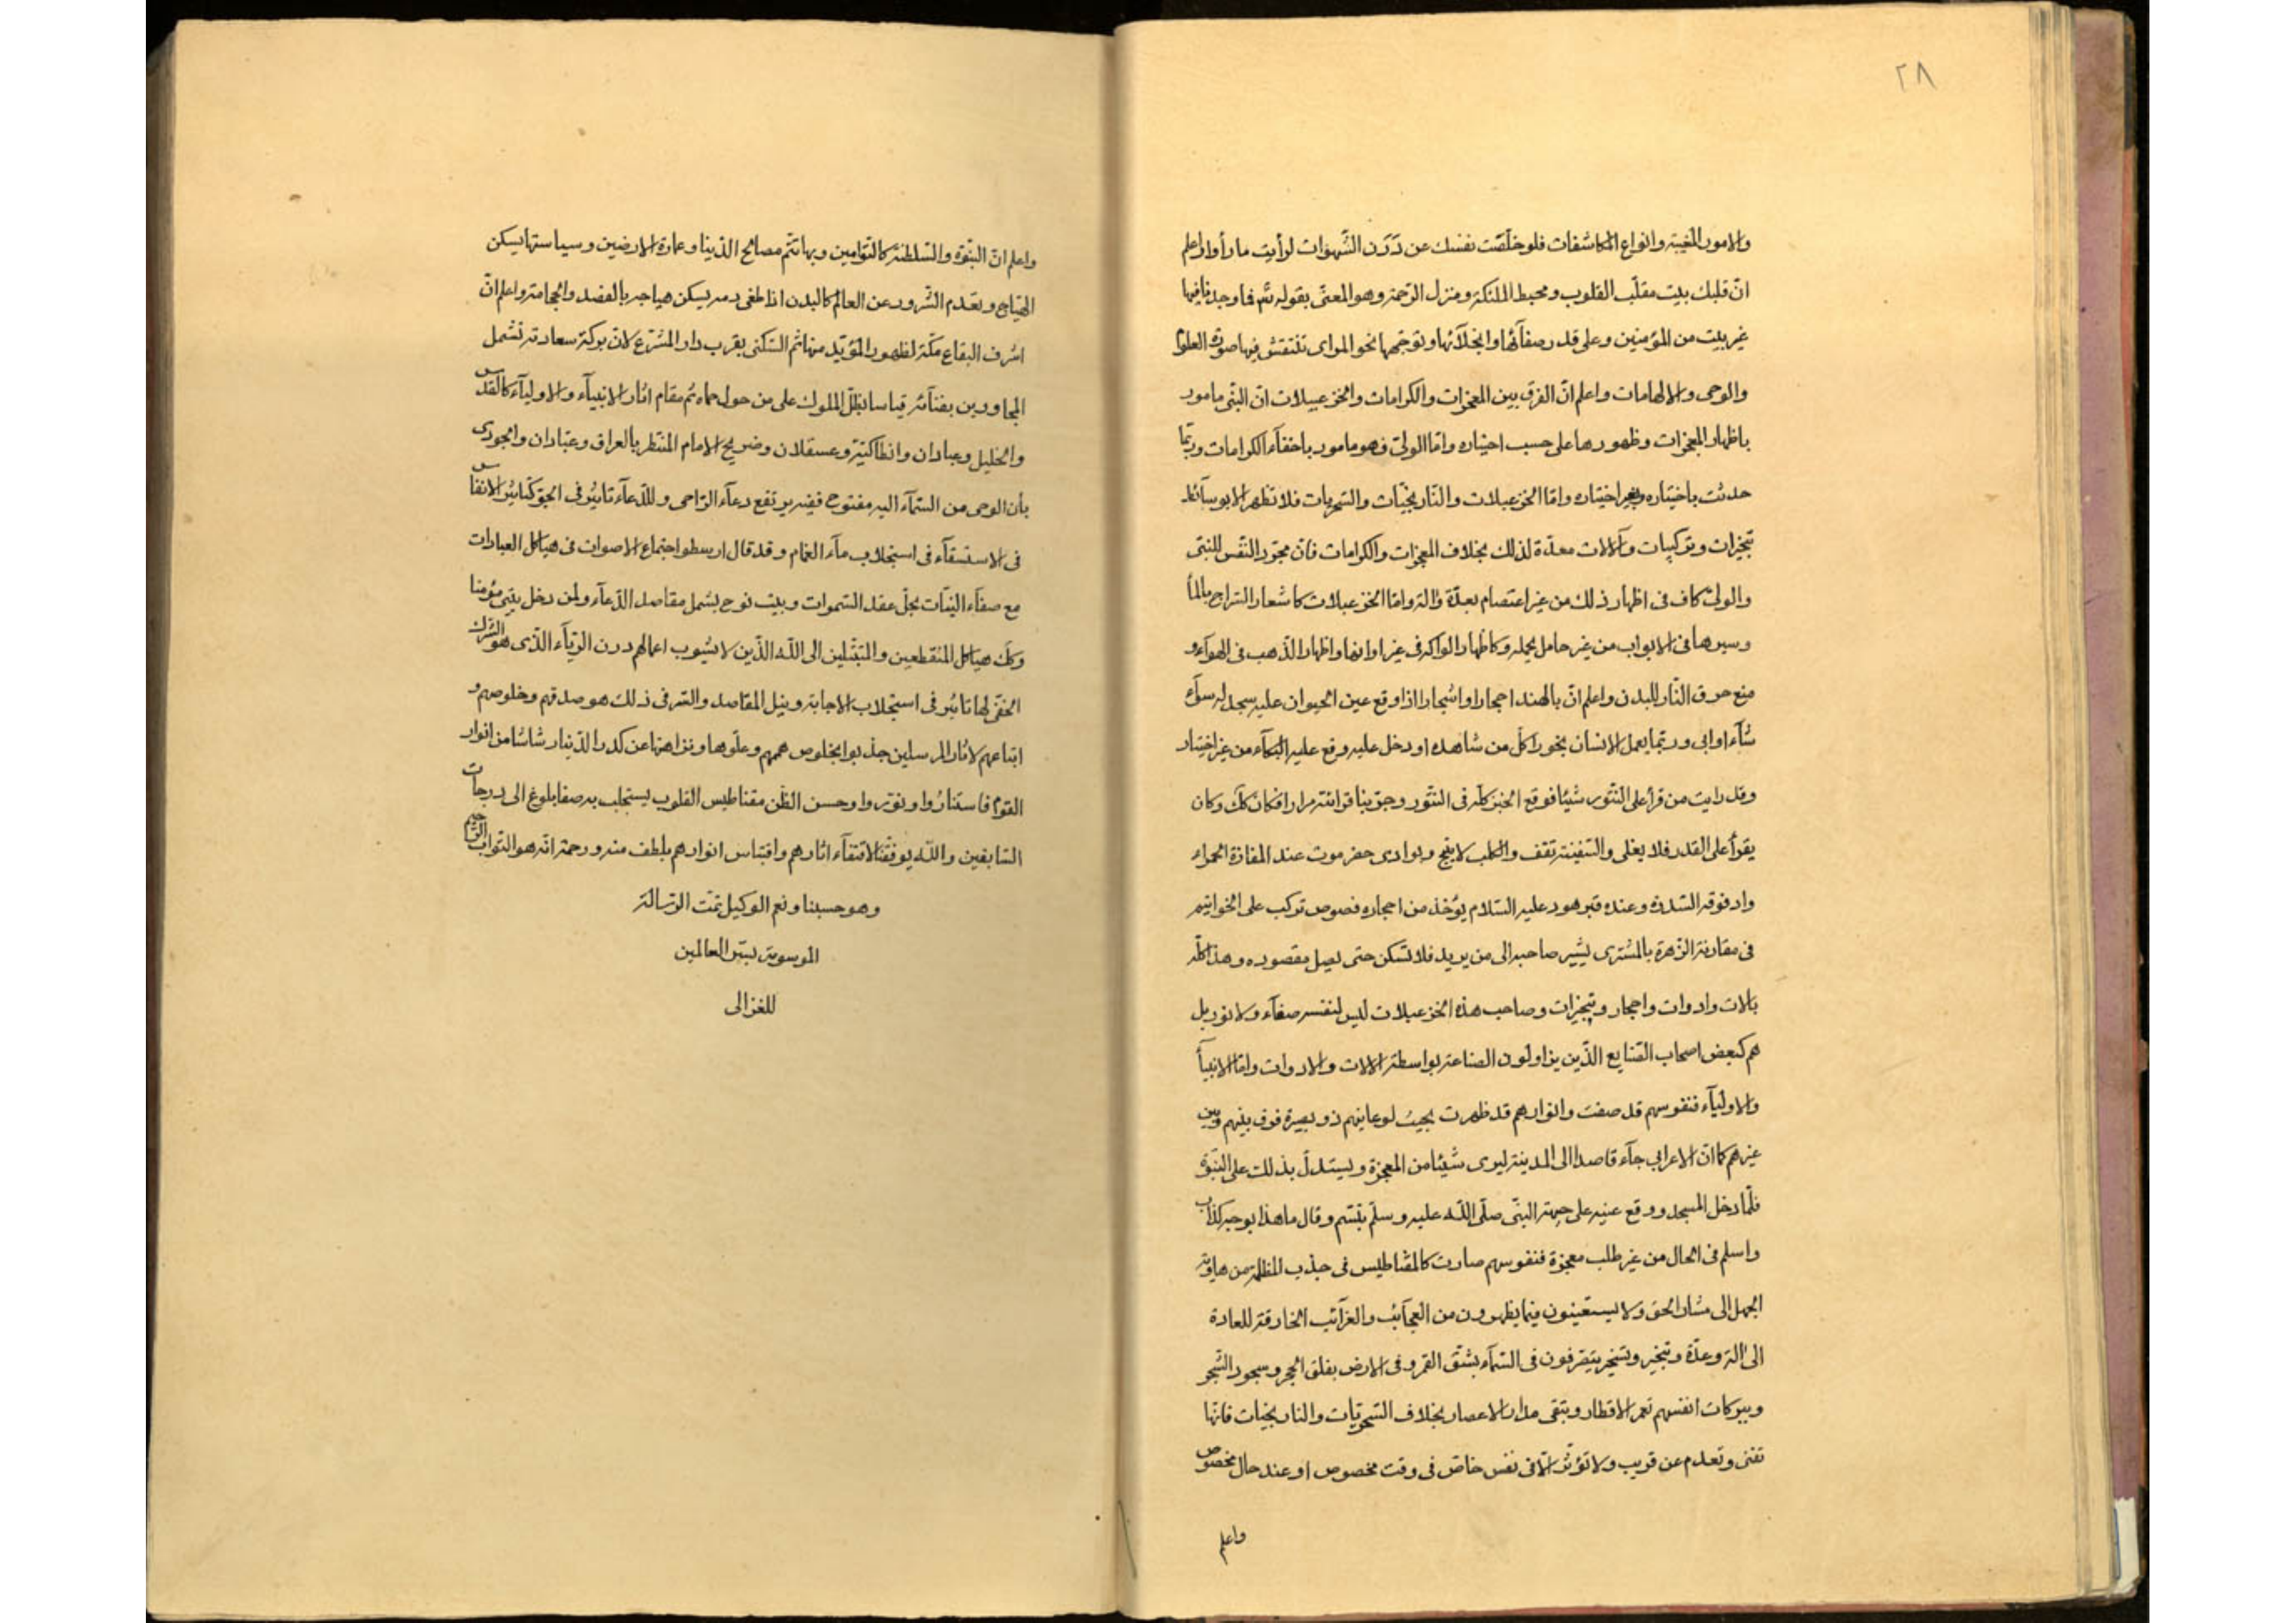 ٢٨
والامور المغيبة وانواع المكاشفات فلو خلّصت نفسك عن دَرَن الشّهوات لرأيت ما رأوا واعلم
انّ قلبك بيت مقلّب القلوب ومحيط الملئكة ومنزل الرّحمة وهو المعنىّ بقوله تعم فما وجدنا فيها
غير بيت من المؤمنين وعلى قدر صفآئها وانجلآئها وتوجّهها نحو المراى تنتقش فيها صورة العلوم
والوحى والالهامات واعلم انّ الفرق بين المعجزات والكرامات والخزعبيلات ان النبّى مامور
باظهار المعجزات وظهورها على حسب اختياره وامّا الولىّ فهو مامور باخفآء الكرامات وربّما
حدثت باختياره وبغير اختياره وامّا الخزعبلات والنّارنجيّات والسّحريات فلا تظهر الا بوسآئط
تبخيرات وتركيبات وآلات معدّة لذلك بخلاف المعجزات والكرامات فانّ مجرّد النّفس للنبّى
والولىّ كاف فى اظهار ذلك من غير اعتصام بعدّة والة وامّا الخزعبلات كاشعار السّراج بالمآ
وسيرها فى الابواب من غير حامل يحمله وكاظهار الفواكه فى غير اوانها واظهار الذّهب فى الهوآء و
منع حرق النّار للبدن واعلم انّ بالهند احجارا واشجارا اذا وقع عين الحيوان عليه سجد له سوآء
شآء او ابى وربّما يعمل الانسان بخورا كلّ من شاهده او دخل عليه وقع عليه البكآء من غير اختيار
وقد رايت من قرأ على التنّور شيئا فوقع الخبز كلّه فى التنّور وجرّبنا قرائته مرارا فكان كلّ وكان
يقرأ على القدر فلا يغلى والسّفينة تقف والكلب لا ينبح وبوادى حضرموت عند المفازة الحمراء
واد فوقه السّدرة وعنده قبر هود عليه السّلام يؤخذ من احجاره فصوص تركب على الخواتيم
فى مقارنة الزّهرة بالمشترى يشير صاحبه الى من يريد فلا تسكن حتى يصل مقصوده وهذا كلّه
بالات وادوات واحجار وتبخيرات وصاحب هذه الخزعبلات ليس لنفسه صفآء ولا نور بل
هم كبعض اصحاب الصّنايع الذّين يزاولون الصناعة بواسطة الالات والادوات وامّا الانبيآ
والاوليآء فنفوسهم قد صفت وانوارهم قد ظهرت بحيث لو عاينهم ذو بصيرة فرق بينهم وبين
غيرهم كما انّ الاعرابي جآء قاصدا الى المدينة ليرى شيئا من المعجزة ويستدلّ بذلك على النّبوّة
فلمّا دخل المسجد ووقع عينه على جبهة النبّى صلّى اللّه عليه وسلّم تبسّم وقال ما هذا بوجه كذّاب
واسلم فى الحال من غير طلب معجزة فنفوسهم صارت كالمقناطيس فى جذب المظلم من هاوية
الجهل الى منار الحق ولا يستعينون فيما يظهرون من العجآئب والغرآئب الخارقة للعادة
الى الة وعدّة وتبخير وتسخير يتصرفون فى السّمآء بشقّ القمر وفى الارض بفلق الحجر وسجود الشّجر
وببركات انفسهم تعمر الاقطار وتبقى مدار الاعصار بخلاف السّحريّات والنارنجيات فانّها
تفنى وتعدم عن قريب ولا تؤثّر الّا فى نفس خاصّ فى وقت مخصوص او عند حال مخصوص
واعلم
واعلم انّ النّبوّة والسّلطنة كالتّوامين وبها تتم مصالح الدّنيا وعمارة الارضين وسياستها يسكن
الهيّاج وبعدم الشّرور عن العالم كالبدن اذا طغى دمه يسكن هياجه بالفصد والحجامة واعلم انّ
اشرف البقاع مكّة لظهور المؤيّد منها ثم السّكنى بقرب دار المشّرع لانّ بركة سعادته تشمل
المجاورين بفنآئه قياسا بظلّ الملوك على من حول حماه ثم مقام اثار الانبيآء والاوليآء كالقدس
والخليل وعبادان وانطاكيّة وعسقلان وضريح الامام المنتظر بالعراق وعبّادان والجودى
بأن الوحى من السّمآء اليه مفتوح ففيه يرتفع دعآء الرّاحى وللدّعآء تاثير فى الجوّ كتاثير الانفاس
فى الاستسقآء فى استجلاب مآء الغمام وقد قال ارسطو اجتماع الاصوات فى هياكل العبادات
مع صفآء النيّات يحلّ عقد السّموات وبيت نوح يشمل مقاصد الدّعآء ولمن دخل بيتى مؤمنا
وكلّ هياكل المنقطعين والمتبتّلين الى اللّه الذّين لا يشوب اعمالهم درن الرّيآء الذّى هو الشرك
الخفىّ لها تاثير فى استجلاب الاجابة ونيل المقاصد والسّر فى ذلك هو صدقهم وخلوصهم و
اتباعهم لاثار المرسلين جذبوا بخلوص هممهم وعلّوها ونزاهتها عن كدر الدّنيا رشاشا من انوار
القوم فاستناروا ونوّروا وحسن الظّن مقناطيس القلوب يستجلب به صفا بلوغ الى درجات
السّابقين واللّه يوفّقنا لاقتفآء اثارهم واقتباس انوارهم بلطف منه ورحمة انّه هو التّواب الرّحيم
وهو حسبنا ونعم الوكيل تمّت الرّسالة
الموسومة بسرّ العالمين
للغزالى